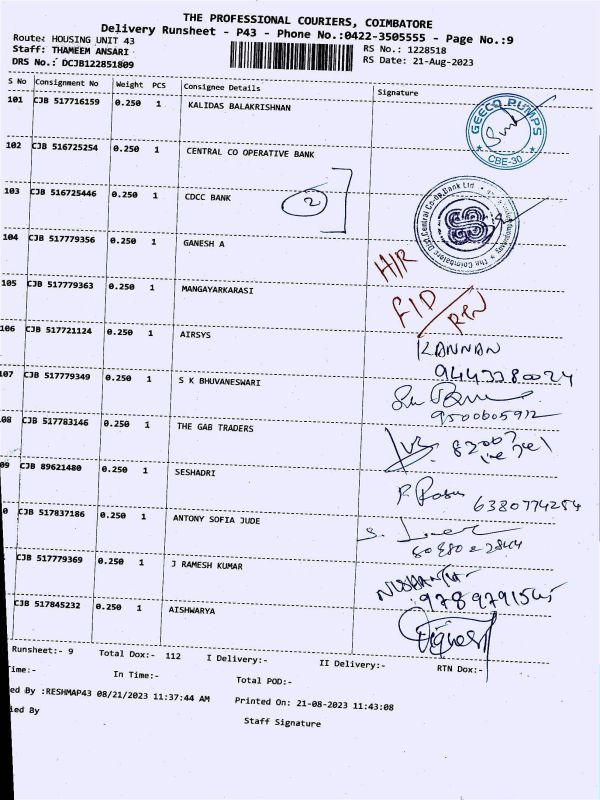 THE PROFESSIONAL COURIERS, COIMBATORE
Delivery Runsheet - P43 - Phone No.:0422-3505555 - Page No.:9
Route: HOUSING UNIT 43
RS No.: 1228518
Staff: THAMEEM ANSARI
RS Date: 21-Aug-2023
DRS No.: DCJB122851809
S No Consignment No Weight PCS Consignee Details Signature
101 CJB 517716159 0.250 1 KALIDAS BALAKRISHNAN
GEECO PUMPS
★ CBE-30 ★
102 CJB 516725254 0.250 1 CENTRAL CO OPERATIVE BANK
103 CJB 516725446 0.250 1 CDCC BANK
2
104 CJB 517779356 0.250 1 GANESH A
H/R
105 CJB 517779363 0.250 1 MANGAYARKARASI
RTN
106 CJB 517721124 0.250 1 AIRSYS
KANNAN
107 CJB 517779349 0.250 1 S K BHUVANESWARI
9500605912
08 CJB 517783146 0.250 1 THE GAB TRADERS
09 CJB 89621480 0.250 1 SESHADRI
6380774254
0 CJB 517837186 0.250 1 ANTONY SOFIA JUDE
CJB 517779369 0.250 1 J RAMESH KUMAR
CJB 517845232 0.250 1 AISHWARYA
Runsheet:- 9 Total Dox:- 112 I Delivery:- II Delivery:- RTN Dox:-
Time:- In Time:- Total POD:-
ed By :RESHMAP43 08/21/2023 11:37:44 AM Printed On: 21-08-2023 11:43:08
ied By
Staff Signature